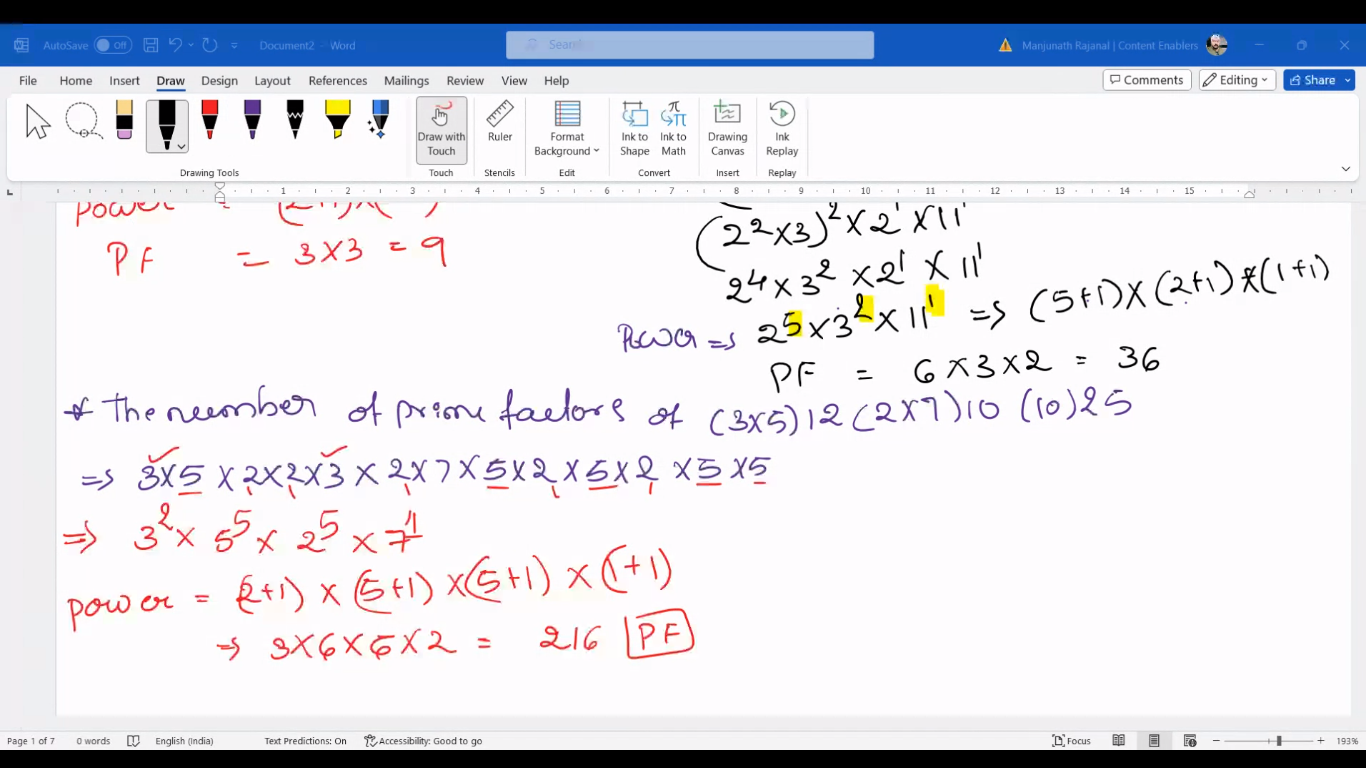 AutoSave Off Document2 - Word Search Manjunath Rajanal | Content Enablers
File Home Insert Draw Design Layout References Mailings Review View Help Comments Editing Share
Draw with Touch Ruler Format Background Ink to Shape Ink to Math Drawing Canvas Ink Replay
Drawing Tools Touch Stencils Edit Convert Insert Replay
1 2 3 4 5 6 7 8 9 10 11 12 13 14 15
power =
PF = 3×3 = 9
(2²×3)²×2¹×11¹
2⁴×3²×2¹×11¹
Power ⇒ 2⁵×3²×11¹ ⇒ (5+1)×(2+1)×(1+1)
PF = 6×3×2 = 36
* The number of prime factors of (3×5)12(2×7)10(10)25
⇒ 3×5×2×2×3×2×7×5×2×5×2×5×5
⇒ 3²×5⁵×2⁵×7¹
power = (2+1)×(5+1)×(5+1)×(1+1)
⇒ 3×6×6×2 = 216 PF
Page 1 of 7 0 words English (India) Text Predictions: On Accessibility: Good to go Focus 193%